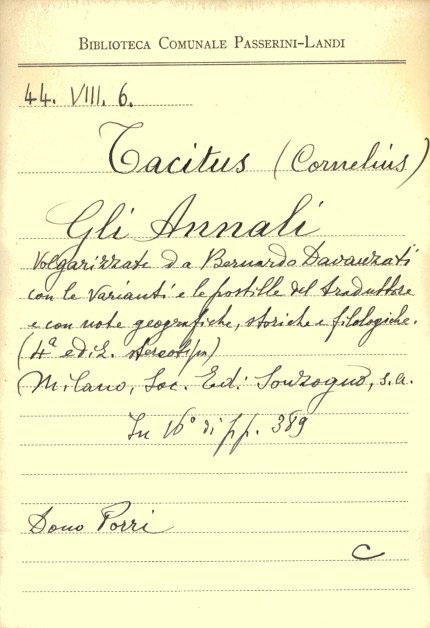 BIBLIOTECA COMUNALE PASSERINI-LANDI
44. VIII. 6.
Tacitus (Cornelius)
Gli Annali
Volgarizzate da Bernardo Davanzati
con le varianti e le postille del traduttore
e con note geografiche, storiche e filologiche.
(4ª ediz. stereotipa)
(Milano, Soc. Ed: Sonzogno, s.a.
In 16° di pp. 389
Dono Porri
C